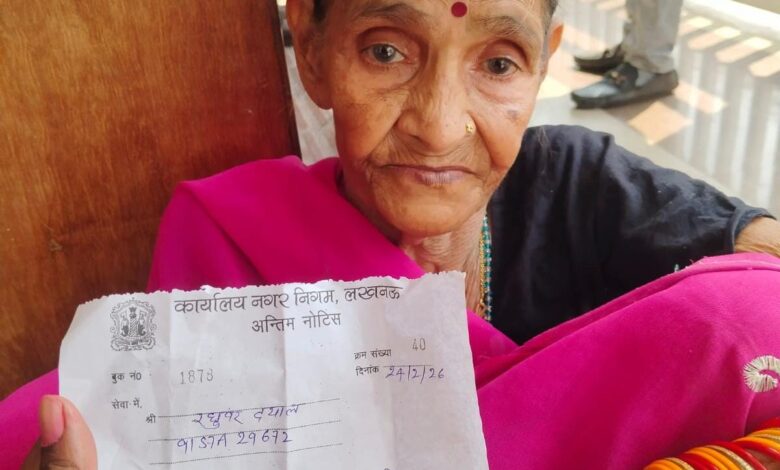 कार्यालय नगर निगम, लखनऊ
अन्तिम नोटिस
बुक नं0 1873
क्रम संख्या 40
दिनांक 24/2/26
सेवा में,
श्री रघुवर दयाल
29672